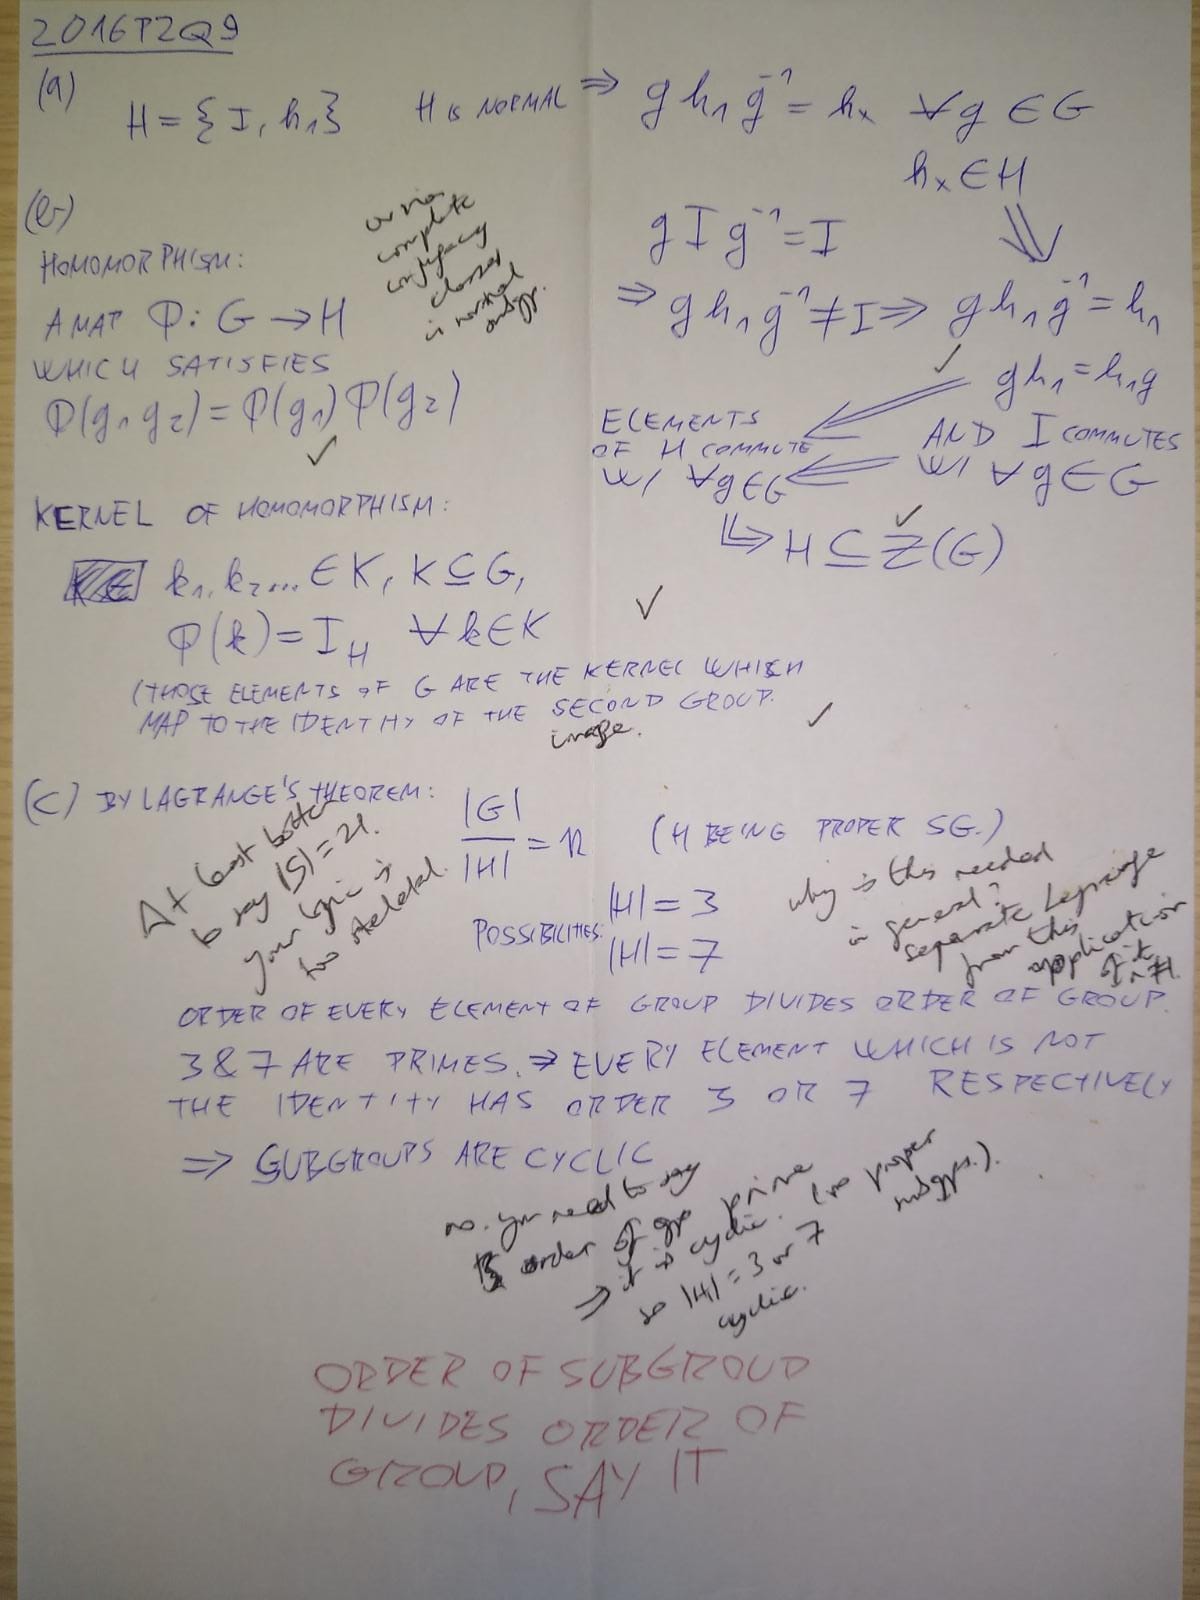 2016P2Q9
(a)
H = {I, h₁}
H IS NORMAL ⇒ g h₁ g⁻¹ = hₓ ∀g ∈ G
hₓ ∈ H
g I g⁻¹ = I
⇒ g h₁ g⁻¹ ≠ I ⇒ g h₁ g⁻¹ = h₁
g h₁ = h₁ g
ELEMENTS
OF H COMMUTE
W/ ∀g∈G
AND I COMMUTES
W/ ∀g∈G
H ⊆ Z(G)
or via
complete
conjugacy
classes
in normal
subgp.
(b)
HOMOMORPHISM:
A MAP Φ: G → H
WHICH SATISFIES
Φ(g₁ g₂) = Φ(g₁) Φ(g₂)
KERNEL OF HOMOMORPHISM:
k₁, k₂... ∈ K, K ⊆ G,
Φ(k) = I_H ∀k∈K
(THOSE ELEMENTS OF G ARE THE KERNEL WHICH
MAP TO THE IDENTITY OF THE SECOND GROUP.
image.
(c) BY LAGRANGE'S THEOREM:
|G|/|H| = n (H BEING PROPER SG.)
At least better
to say |S| = 21.
your logic is
too skeletal.
POSSIBILITIES: |H| = 3
|H| = 7
why is this needed
in general?
separate Lagrange
from this
application
of it
in #.
ORDER OF EVERY ELEMENT OF GROUP DIVIDES ORDER OF GROUP.
3 & 7 ARE PRIMES. ⇒ EVERY ELEMENT WHICH IS NOT
THE IDENTITY HAS ORDER 3 OR 7 RESPECTIVELY
⇒ SUBGROUPS ARE CYCLIC
no. you need to say
order of gp prime
⇒ it is cyclic. (no proper
subgps.).
so |H| = 3 or 7
cyclic.
ORDER OF SUBGROUP
DIVIDES ORDER OF
GROUP, SAY IT